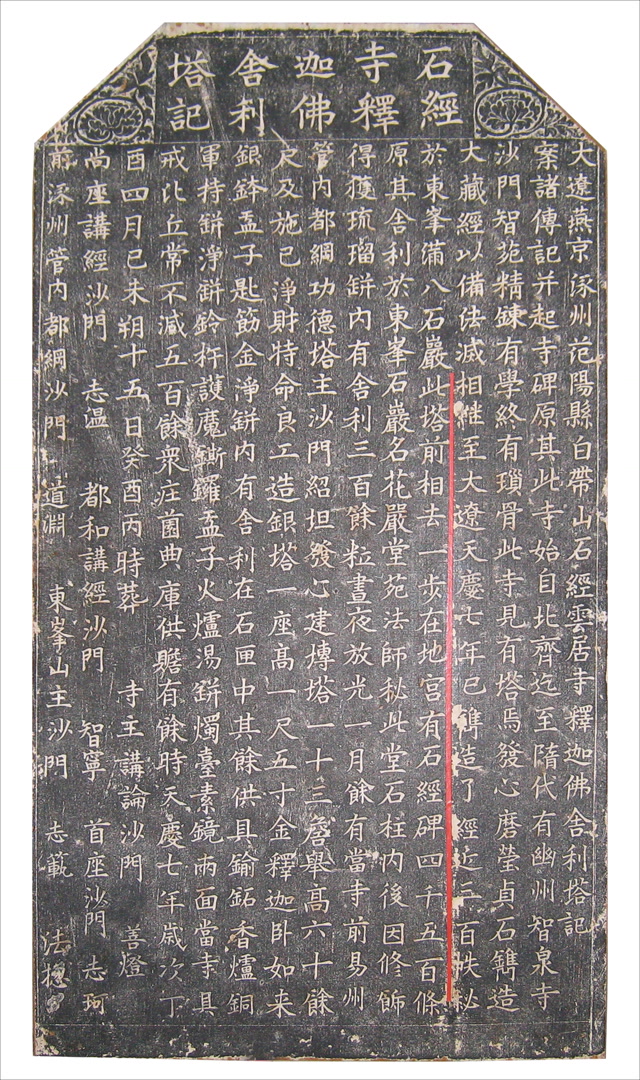 石經寺釋迦佛舍利塔記
大遼燕京涿州范陽縣白帶山石經雲居寺釋迦佛舍利塔記
案諸傳記并起寺碑原其此寺始自北齊迄至隋代有幽州智泉寺
沙門智苑精錬有學終有瑣骨此寺見有塔焉發心磨瑩貞石鐫造
大藏經以備法滅相継至大遼天慶七年已鐫造了經近三百帙秘
於東峯滿八石巖此塔前相去一步在地宮有石經碑四千五百條
原其舍利於東峯石巖名花嚴堂苑法師秘此堂石柱内後因修飾
得獲琉瑠鉼内有舍利三百餘粒晝夜放光一月餘有當寺前易州
管内都綱功德塔主沙門紹坦發心建塼塔一十三簷舉髙六十餘
尺及施已淨財特命良工造銀塔一座高一尺五寸金釋迦卧如来
銀鉢盂子匙筯金淨鉼内有舍利在石匣中其餘供具鍮鉐香爐銅
軍持鉼淨鉼鈴杵護魔鐁鑼盂子火爐湯鉼燭臺素鏡兩面當寺具
戒比丘常不減五百餘衆庄菌典庫供贍有餘時天慶七年歲次丁
酉四月已未朔十五日癸酉丙時葬 寺主講論沙門 善燈
尚座講經沙門 志温 都和講經沙門 智寧 首座沙門 志珂
前涿州管内都綱沙門 道淵 東峯山主沙門 志範 法